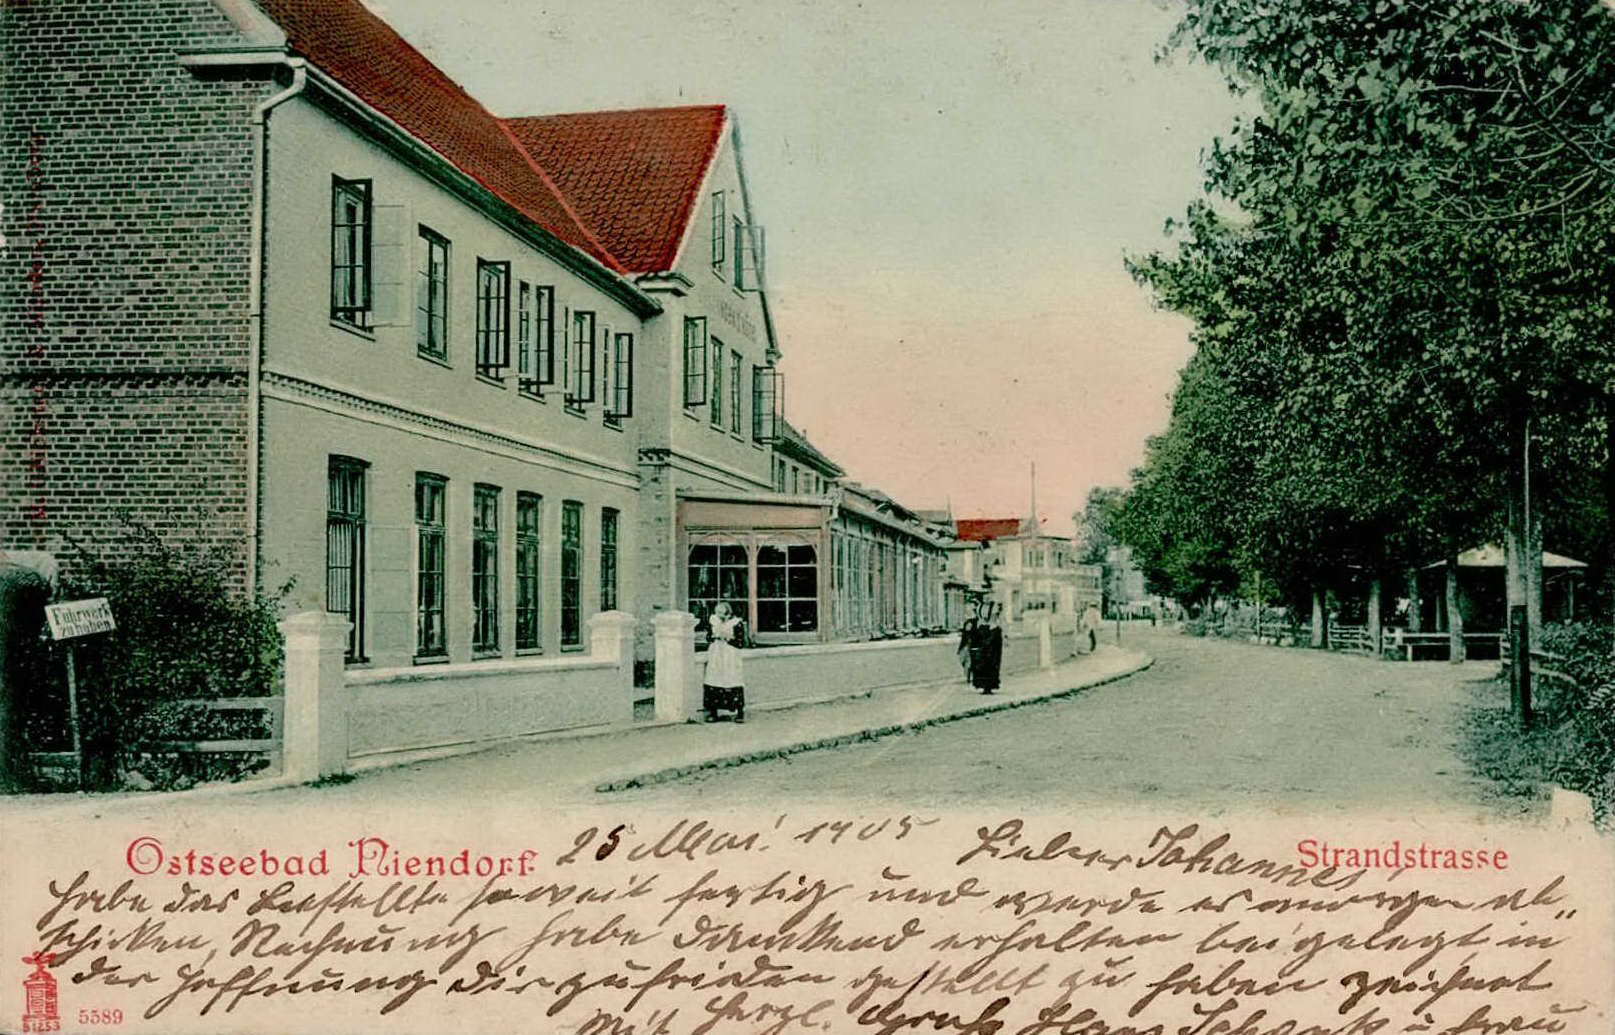 Fuhrwerk
zu haben
Ostseebad Niendorf.
Strandstrasse
25 Mai 1905 Lieber Johannes!
habe das Bestellte soweit fertig und werde es morgen ab„
schicken, Rechnung habe dankend erhalten beigelegt, in
der Hoffnung Dir zufrieden gestellt zu haben zeichnet
Mit herzl. Gruß Hans Schenk u. Frau
5589
51253